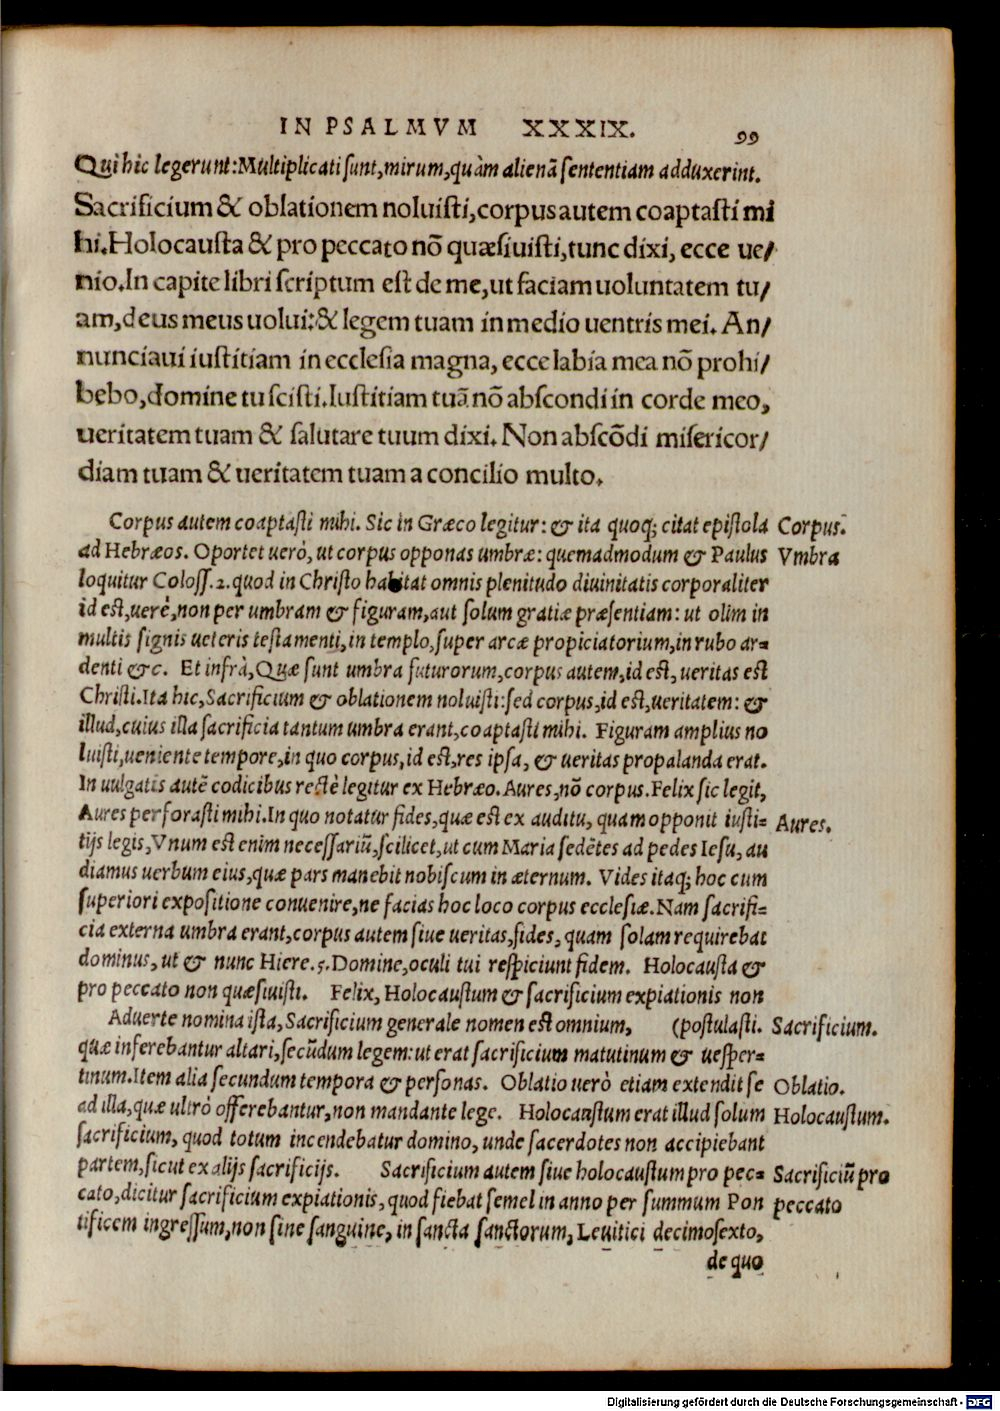 IN PSALMVM XXXIX. 99
Qui hic legerunt: Multiplicati sunt, mirum, quàm alienā sententiam adduxerint.
Sacrificium & oblationem noluisti, corpus autem coaptasti mi
hi. Holocausta & pro peccato nō quæsiuisti, tunc dixi, ecce ue/
nio. In capite libri scriptum est de me, ut faciam uoluntatem tu/
am, deus meus uolui: & legem tuam in medio uentris mei. An/
nunciaui iustitiam in ecclesia magna, ecce labia mea nō prohi/
bebo, domine tu scisti. Iustitiam tuā nō abscondi in corde meo,
ueritatem tuam & salutare tuum dixi. Non abscōdi misericor/
diam tuam & ueritatem tuam a concilio multo.
Corpus autem coaptasti mihi. Sic in Græco legitur: & ita quoq; citat epistola Corpus.
ad Hebræos. Oportet uerò, ut corpus opponas umbræ: quemadmodum & Paulus Vmbra
loquitur Coloss. 2. quod in Christo habitat omnis plenitudo diuinitatis corporaliter
id est, uerè, non per umbram & figuram, aut solum gratiæ præsentiam: ut olim in
multis signis ueteris testamenti, in templo, super arcæ propiciatorium, in rubo ar=
denti &c. Et infrà, Quæ sunt umbra futurorum, corpus autem, id est, ueritas est
Christi. Ita hic, Sacrificium & oblationem noluisti: sed corpus, id est, ueritatem: &
illud, cuius illa sacrificia tantum umbra erant, coaptasti mihi. Figuram amplius no
luisti, ueniente tempore, in quo corpus, id est, res ipsa, & ueritas propalanda erat.
In uulgatis autē codicibus rectè legitur ex Hebræo. Aures, nō corpus. Felix sic legit,
Aures perforasti mihi. In quo notatur fides, quæ est ex auditu, quam opponit iusti= Aures.
tijs legis, Vnum est enim necessariū, scilicet, ut cum Maria sedētes ad pedes Iesu, au
diamus uerbum eius, quæ pars manebit nobiscum in æternum. Vides itaq; hoc cum
superiori expositione conuenire, ne facias hoc loco corpus ecclesiæ. Nam sacrifi=
cia externa umbra erant, corpus autem siue ueritas, fides, quam solam requirebat
dominus, ut & nunc Hiere. 5. Domine, oculi tui respiciunt fidem. Holocausta &
pro peccato non quæsiuisti. Felix, Holocaustum & sacrificium expiationis non
Aduerte nomina ista, Sacrificium generale nomen est omnium, (postulasti. Sacrificium.
quæ inferebantur altari, secūdum legem: ut erat sacrificium matutinum & uesper=
tinum. Item alia secundum tempora & personas. Oblatio uerò etiam extendit se Oblatio.
ad illa, quæ ultrò offerebantur, non mandante lege. Holocaustum erat illud solum Holocaustum.
sacrificium, quod totum incendebatur domino, unde sacerdotes non accipiebant
partem, sicut ex alijs sacrificijs. Sacrificium autem siue holocaustum pro pec= Sacrificiū pro
cato, dicitur sacrificium expiationis, quod fiebat semel in anno per summum Pon peccato
tificem ingressum, non sine sanguine, in sancta sanctorum, Leuitici decimosexto,
de quo
Digitalisierung gefördert durch die Deutsche Forschungsgemeinschaft - DFG